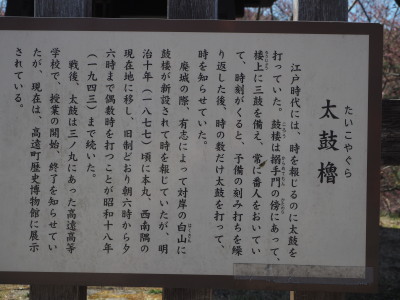 たいこやぐら
太鼓櫓
江戸時代には、時を報じるのに太鼓を
打っていた。鼓楼は搦手門の傍にあって、
楼上に三鼓を備え、常に番人をおいてい
て、時刻がくると、予備の刻み打ちを繰
り返した後、時の数だけ太鼓を打って、
時を知らせていた。
廃城の際、有志によって対岸の白山に
鼓楼が新設されて時を報じていたが、明
治十年（一八七七）頃に本丸、西南隅の
現在地に移し、旧制どおり朝六時から夕
六時まで偶数時を打つことが昭和十八年
（一九四三）まで続いた。
戦後、太鼓は三ノ丸にあった高遠高等
学校で、授業の開始、終了を知らせてい
たが、現在は、高遠町歴史博物館に展示
されている。